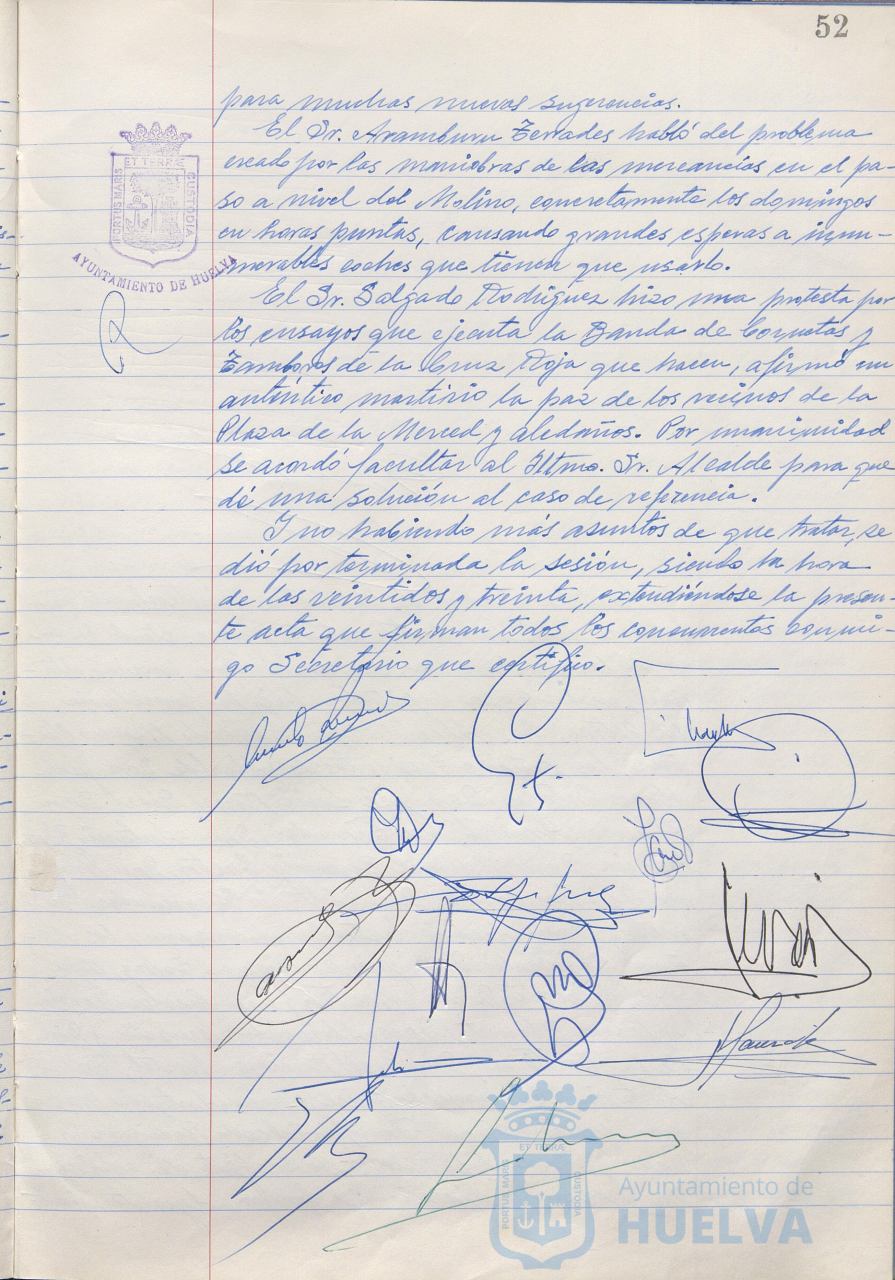 52
para muchas nuevas sugerencias.
El Sr. Aramburu Terrades habló del problema
creado por las maniobras de las mercancías en el pa-
so a nivel del Molino, concretamente los domingos
en horas puntas, causando grandes esperas a innu-
merables coches que tienen que usarlo.
El Sr. Salgado Rodríguez hizo una protesta por
los ensayos que ejecuta la Banda de Cornetas y
Tambores de la Cruz Roja que hacen, afirmó un
auténtico martirio la paz de los vecinos de la
Plaza de la Merced y aledaños. Por unanimidad
se acordó facultar al Iltmo. Sr. Alcalde para que
dé una solución al caso de referencia.
Y no habiendo más asuntos de que tratar, se
dió por terminada la sesión, siendo la hora
de las veintidos y treinta, extendiéndose la presen-
te acta que firman todos los concurrentes conmi-
go Secretario que certifico.
PORTUS MARIS ET TERRÆ CUSTODIA
AYUNTAMIENTO DE HUELVA
PORTUS MARIS ET TERRÆ CUSTODIA
Ayuntamiento de
HUELVA